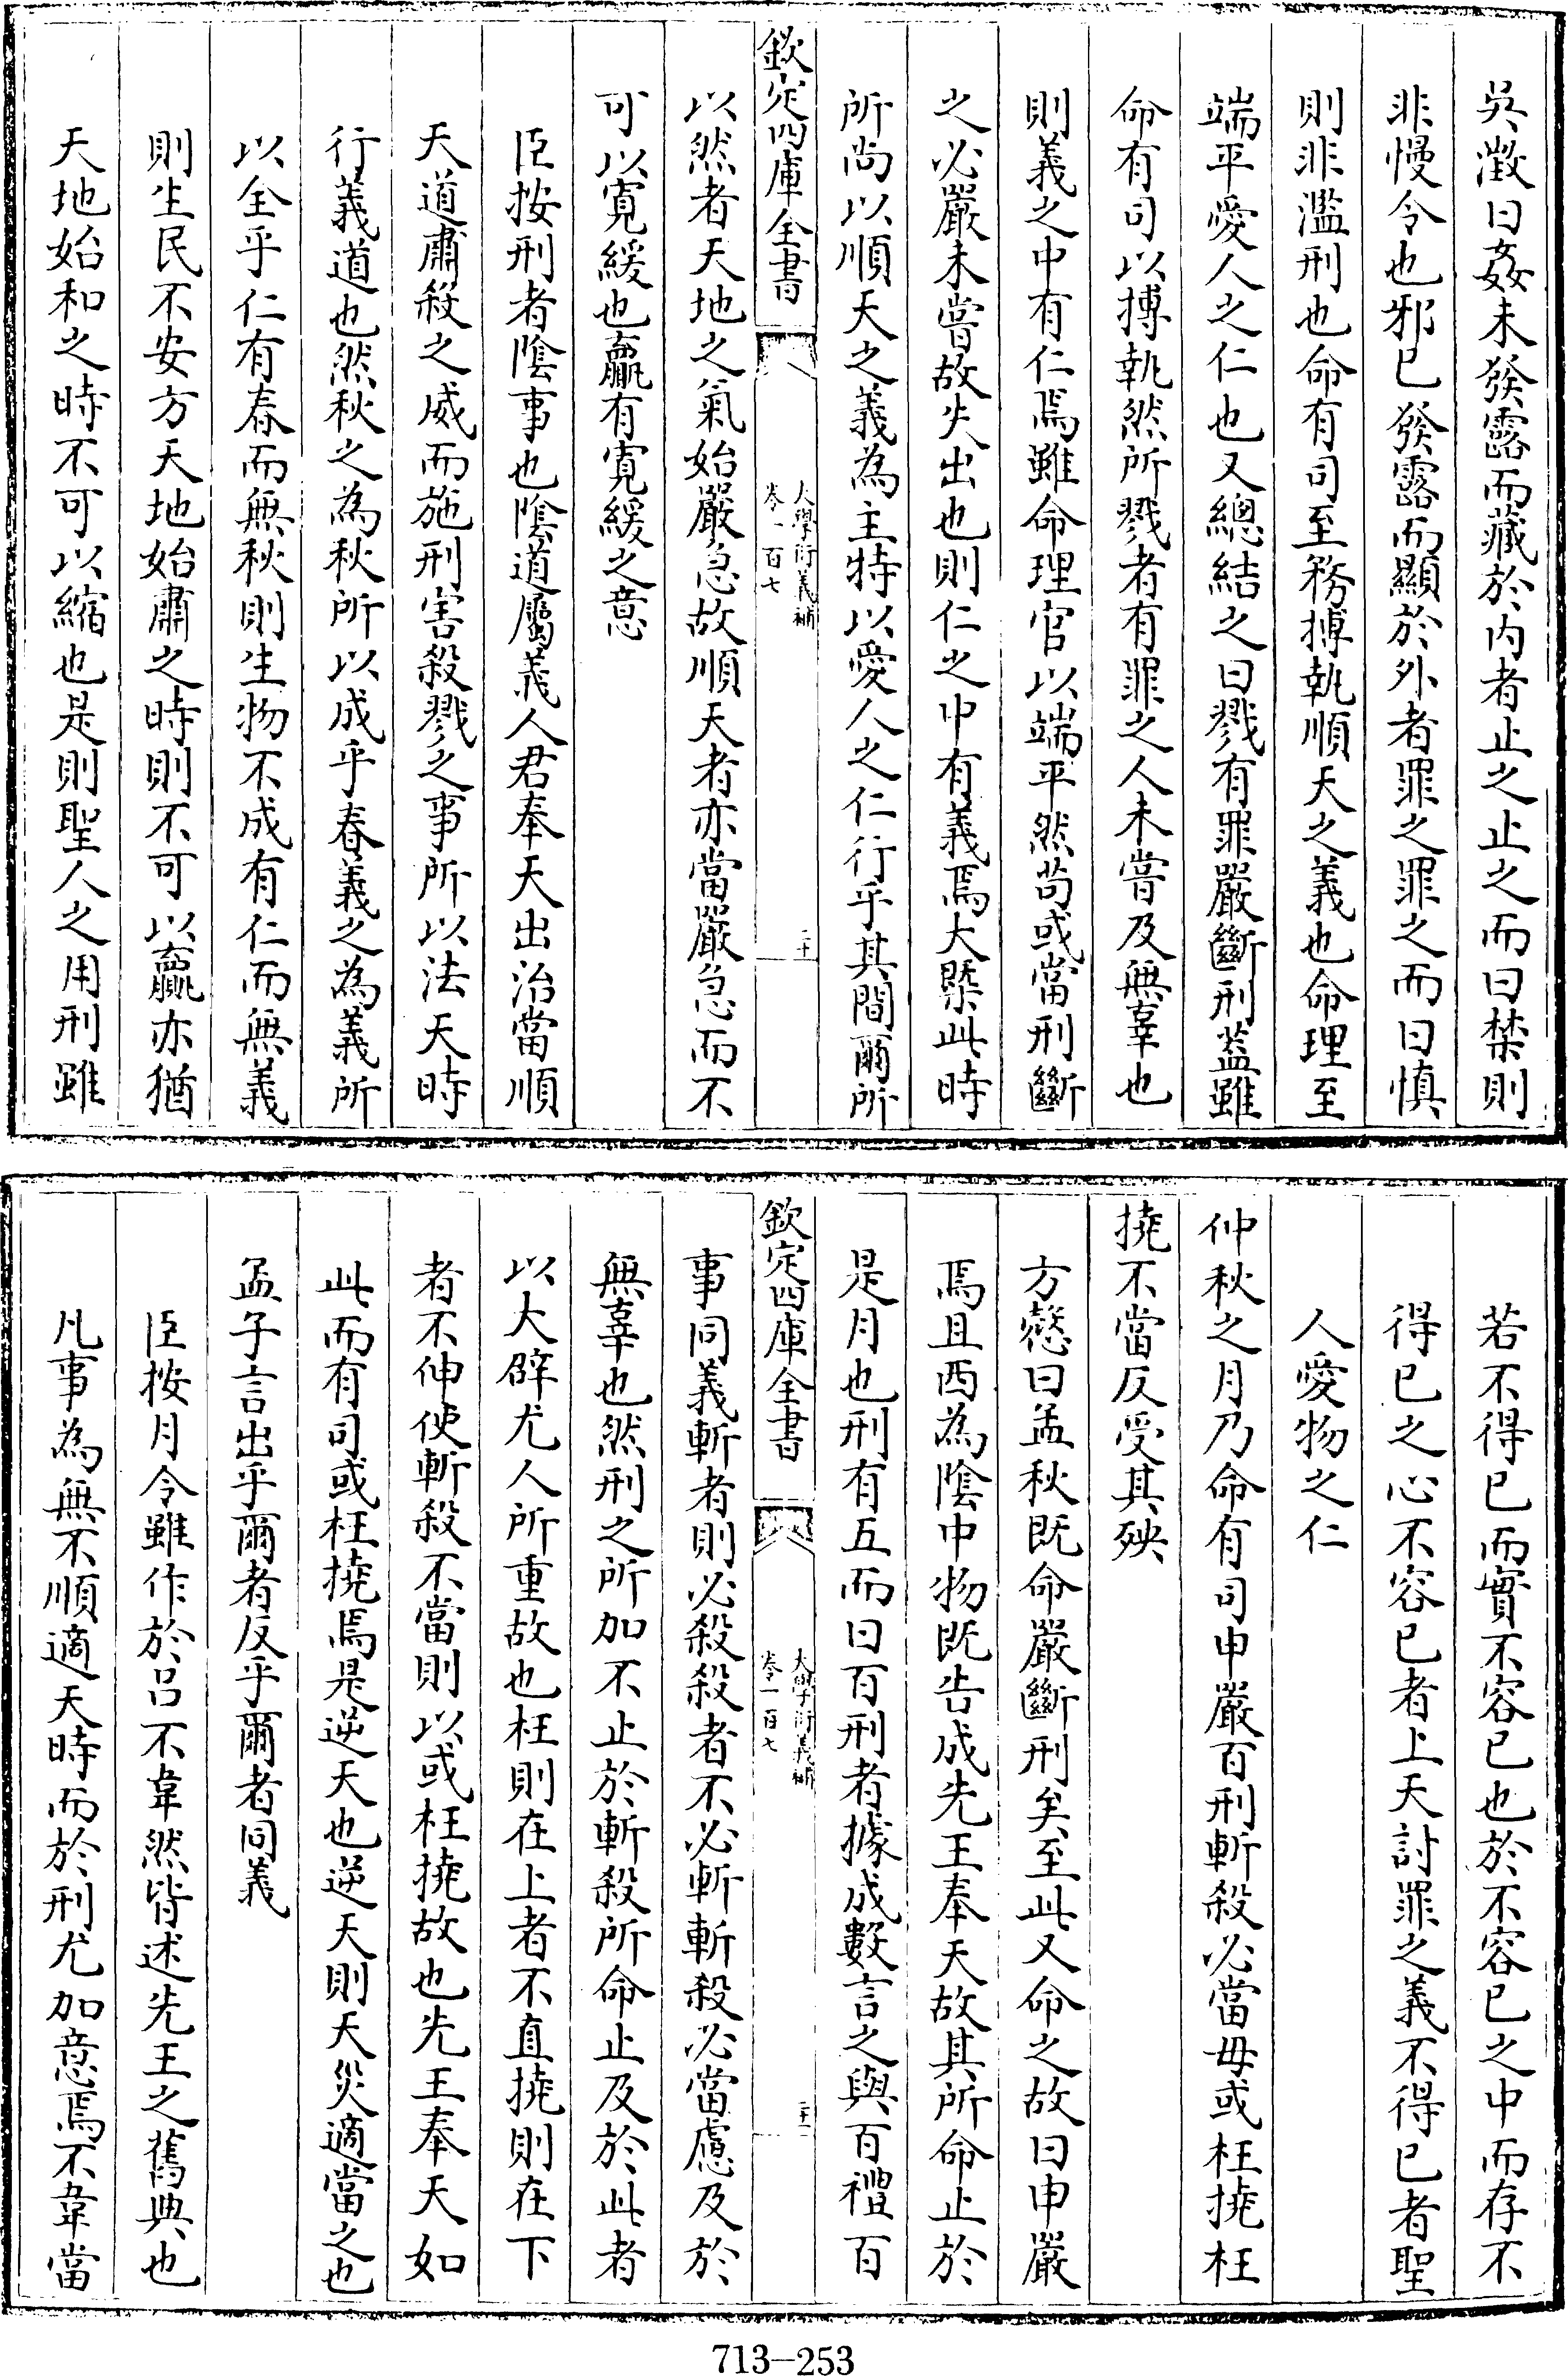 吳澂曰姦未發露而藏於内者止之止之而曰禁則
非慢令也邪已發露而顯於外者罪之罪之而曰慎
則非濫刑也命有司至務搏執順天之義也命理至
端平愛人之仁也又總結之曰戮有罪嚴斷刑蓋雖
命有司以搏執然所戮者有罪之人未嘗及無辜也
則義之中有仁焉雖命理官以端平然苟或當刑斷
之必嚴未嘗故失出也則仁之中有義焉大槩此時
所尚以順天之義為主特以愛人之仁行乎其間爾所
欽定四庫全書
大學衍義補
卷一百七
二十
以然者天地之氣始嚴急故順天者亦當嚴急而不
可以寛緩也贏有寛緩之意
臣按刑者陰事也陰道屬義人君奉天出治當順
天道肅殺之威而施刑害殺戮之事所以法天時
行義道也然秋之為秋所以成乎春義之為義所
以全乎仁有春而無秋則生物不成有仁而無義
則生民不安方天地始肅之時則不可以贏亦猶
天地始和之時不可以縮也是則聖人之用刑雖
若不得已而實不容已也於不容已之中而存不
得已之心不容已者上天討罪之義不得已者聖
人愛物之仁
仲秋之月乃命有司申嚴百刑斬殺必當毋或枉撓枉
撓不當反受其殃
方慤曰孟秋既命嚴斷刑矣至此又命之故曰申嚴
焉且西為陰中物既告成先王奉天故其所命止於
是月也刑有五而曰百刑者據成數言之與百禮百
欽定四庫全書
大學衍義補
卷一百七
二十一
事同義斬者則必殺殺者不必斬斬殺必當慮及於
無辜也然刑之所加不止於斬殺所命止及於此者
以大辟尤人所重故也枉則在上者不直撓則在下
者不伸使斬殺不當則以或枉撓故也先王奉天如
此而有司或枉撓焉是逆天也逆天則天災適當之也
孟子言出乎爾者反乎爾者同義
臣按月令雖作於呂不韋然皆述先王之舊典也
凡事為無不順適天時而於刑尤加意焉不韋當
713-253